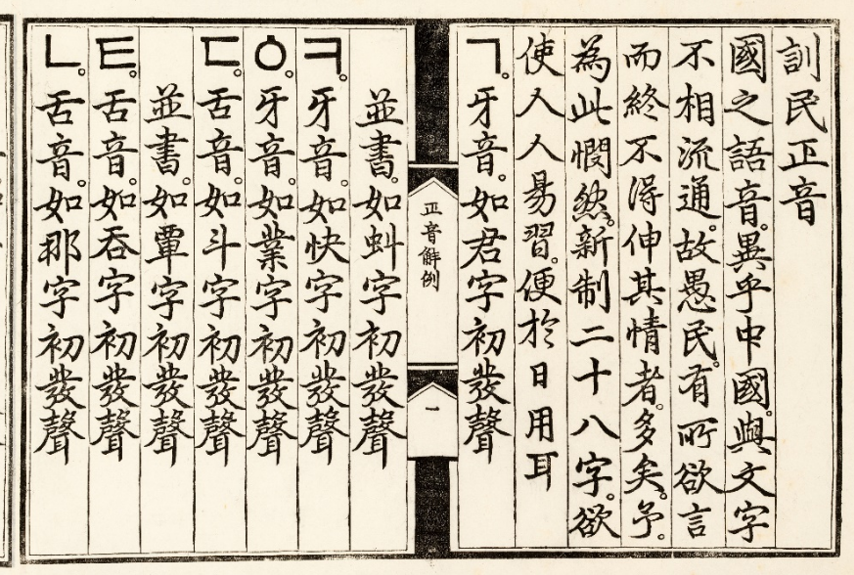 訓民正音
國之語音。異乎中國。與文字
不相流通。故愚民。有所欲言
而終不得伸其情者。多矣。予。
為此憫然。新制二十八字。欲
使人人易習。便於日用耳
ㄱ。牙音。如君字初發聲
正音解例
一
並書。如虯字初發聲
ㅋ。牙音。如快字初發聲
ㆁ。牙音。如業字初發聲
ㄷ。舌音。如斗字初發聲
並書。如覃字初發聲
ㅌ。舌音。如呑字初發聲
ㄴ。舌音。如那字初發聲